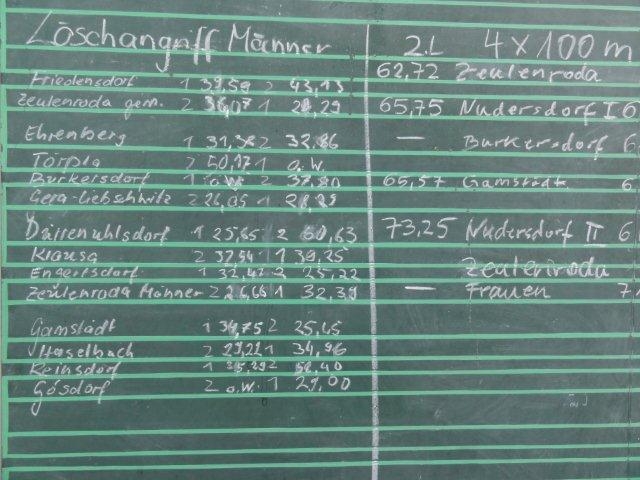 Löschangriff Männer
Friedensdorf 1 39,59 2 43,13
Zeulenroda gem. 2 1
Ehrenberg 1 2
Törpla 2 50,17 1 o.W.
Burkersdorf 1 o.W. 2
Gera-Liebschwitz 2 1
Dürrenuhlsdorf 1 25,65 2 60,63
Krausa 2 37,54 1 39,25
Engertsdorf 1 32,47 2 25,22
Zeulenroda Männer 2 26,66 1 32,39
Gamstädt 1 34,75 2 25,45
Haselbach 2 1 34,96
Reinsdorf 1 2
Gösdorf 2 o.W. 1 29,00
2.L 4x100m
62,72 Zeulenroda
65,75 Nudersdorf I
— Burkersdorf 6
65,57 Gamstädt 6
73,25 Nudersdorf II 6
Zeulenroda
— Frauen